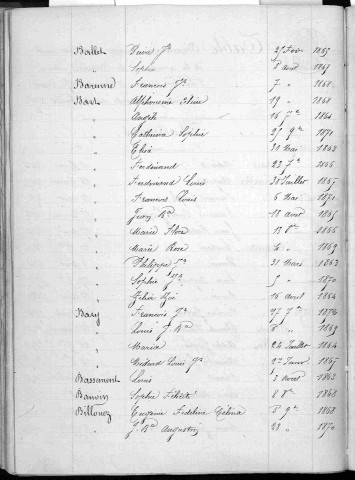 Ballet Pierre Jh 25 Fév 1865
" Sophie 8 avril 1867
Baruvre François Jh 7 " 1861
Bart Alphonsine Elise 19 " 1868
" Angèle 16 7bre 1864
" Catherine Sophie 25 9bre 1870
" Elisa 30 Mai 1863
" Ferdinand 23 7bre 1866
" Ferdinand Louis 30 Juillet 1865
" François Louis 6 Mai 1871
" Jean Bte 18 avril 1865
" Marie Flore 13 8bre 1866
" Marie Rose 4 " 1869
" Philippe 31 Mars 1863
" Sophie 5 " 1870
" Zélie Zoé 16 avril 1864
Basy François Jh 27 1870
" Louis J. Bte 8 " 1869
" Maria 26 Juillet 1864
" Médard Louis Jh 2 Janv 1865
Bassement Louis 3 Avril 1863
Bauvin Sophie Félicité 8 8bre 1868
Billouez Eugénie Fidéline Célina 5 9bre 1868
" J. Bte Augustin 28 " 1870